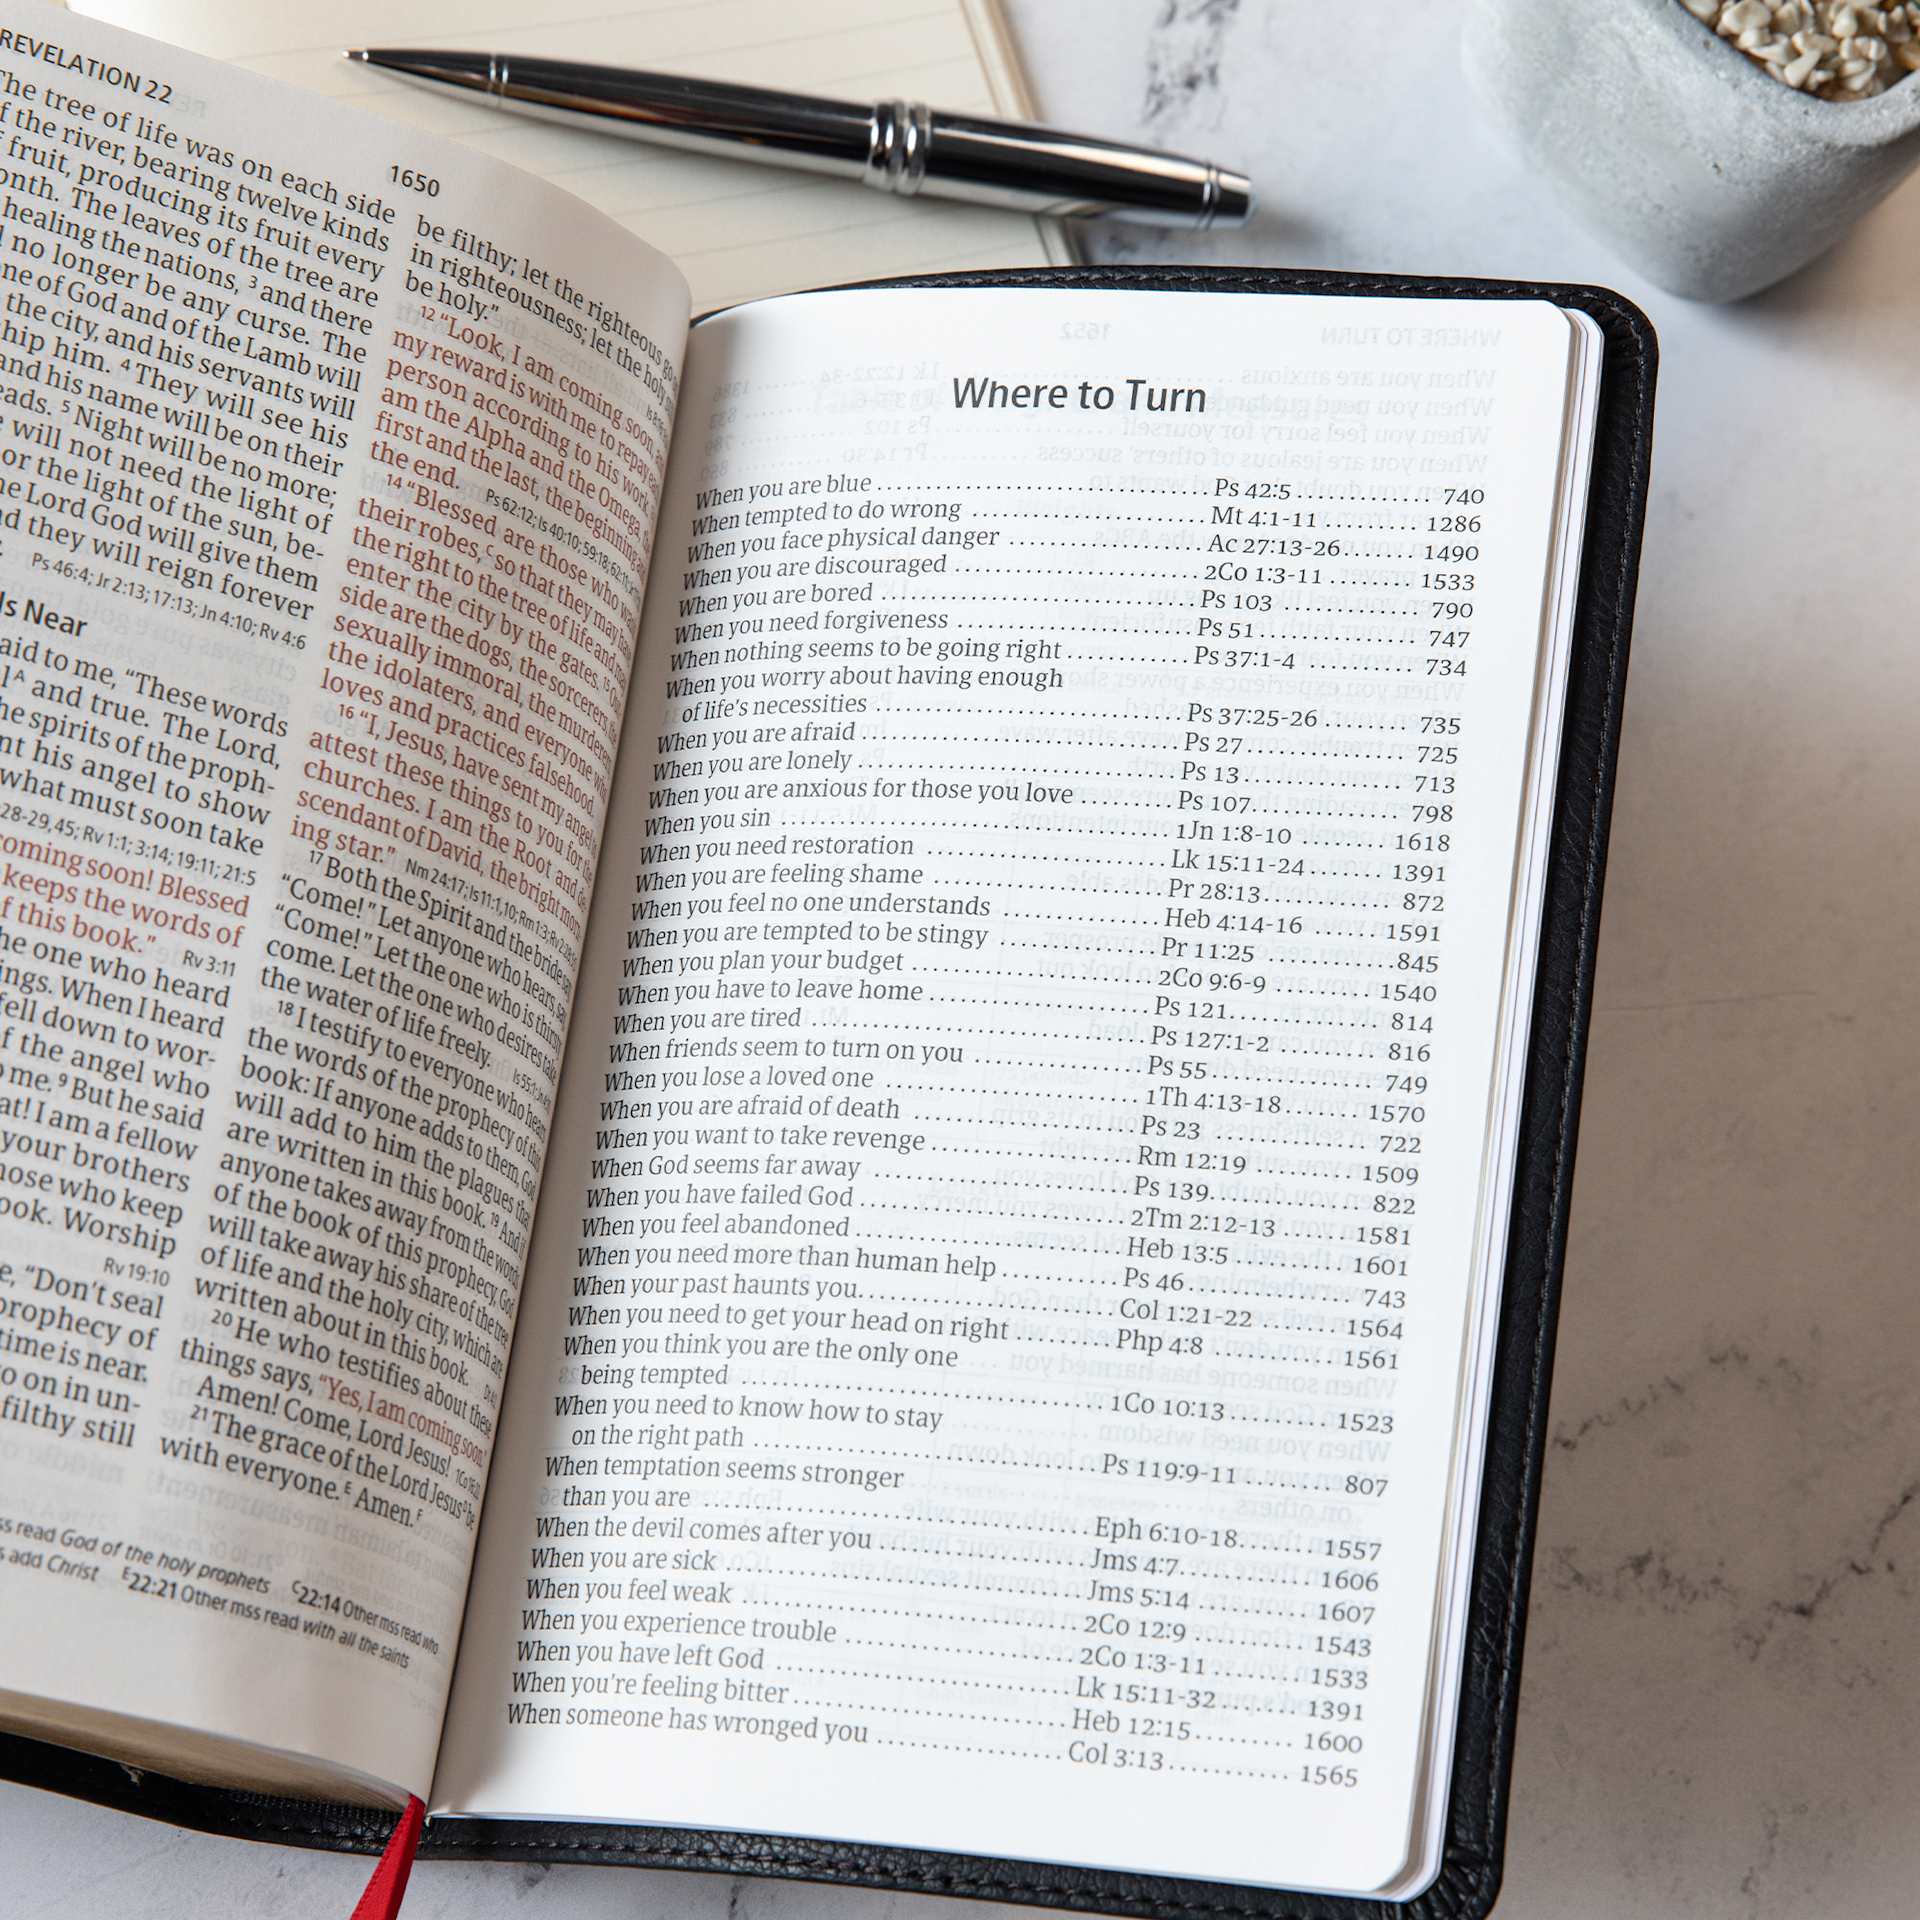 REVELATION 22
1650
The tree of life was on each side
of the river, bearing twelve kinds
of fruit, producing its fruit every
month. The leaves of the tree are
healing the nations, 3 and there
no longer be any curse. The
of God and of the Lamb will
the city, and his servants will
him. 4 They will see his
and his name will be on their
5 Night will be no more;
will not need the light of
or the light of the sun, be-
Lord God will give them
they will reign forever
Ps 46:4; Jr 2:13; 17:13; Jn 4:10; Rv 4:6
Is Near
to me, “These words
A and true. The Lord,
spirits of the proph-
his angel to show
what must soon take
28-29,45; Rv 1:1; 3:14; 19:11; 21:5
coming soon! Blessed
keeps the words of
of this book.” Rv 3:11
the one who heard
When I heard
fell down to wor-
of the angel who
me. 9 But he said
I am a fellow
your brothers
those who keep
Worship
Rv 19:10
“Don’t seal
prophecy of
time is near.
go on in un-
filthy still
be filthy; let the righteous go
in righteousness; let the holy
be holy.”
12 “Look, I am coming soon, and
my reward is with me to repay each
person according to his work.
am the Alpha and the Omega, the
first and the last, the beginning and
the end. Ps 62:12; Is 40:10; 59:18; 62:11
14 “Blessed are those who wash
their robes,C so that they may have
the right to the tree of life and may
enter the city by the gates. 15 Out-
side are the dogs, the sorcerers, the
sexually immoral, the murderers,
the idolaters, and everyone who
loves and practices falsehood.
16 “I, Jesus, have sent my angel to
attest these things to you for the
churches. I am the Root and de-
scendant of David, the bright morn-
ing star.” Nm 24:17; Is 11:1,10; Rm 1:3; Rv 2:28
17 Both the Spirit and the bride say,
“Come!” Let anyone who hears, say,
“Come!” Let the one who is thirsty
come. Let the one who desires take
the water of life freely. Is 55:1
18 I testify to everyone who hears
the words of the prophecy of this
book: If anyone adds to them, God
will add to him the plagues that
are written in this book. 19 And if
anyone takes away from the words
of the book of this prophecy, God
will take away his share of the tree
of life and the holy city, which are
written about in this book.
20 He who testifies about these
things says, “Yes, I am coming soon.”
Amen! Come, Lord Jesus!
21 The grace of the Lord Jesus be
with everyone.E Amen.F
read God of the holy prophets C22:14 Other mss read who
add Christ E22:21 Other mss read with all the saints
Where to Turn
When you are blue Ps 42:5 740
When tempted to do wrong Mt 4:1-11 1286
When you face physical danger Ac 27:13-26 1490
When you are discouraged 2Co 1:3-11 1533
When you are bored Ps 103 790
When you need forgiveness Ps 51 747
When nothing seems to be going right Ps 37:1-4 734
When you worry about having enough
of life’s necessities Ps 37:25-26 735
When you are afraid Ps 27 725
When you are lonely Ps 13 713
When you are anxious for those you love Ps 107 798
When you sin 1Jn 1:8-10 1618
When you need restoration Lk 15:11-24 1391
When you are feeling shame Pr 28:13 872
When you feel no one understands Heb 4:14-16 1591
When you are tempted to be stingy Pr 11:25 845
When you plan your budget 2Co 9:6-9 1540
When you have to leave home Ps 121 814
When you are tired Ps 127:1-2 816
When friends seem to turn on you Ps 55 749
When you lose a loved one 1Th 4:13-18 1570
When you are afraid of death Ps 23 722
When you want to take revenge Rm 12:19 1509
When God seems far away Ps 139 822
When you have failed God 2Tm 2:12-13 1581
When you feel abandoned Heb 13:5 1601
When you need more than human help Ps 46 743
When your past haunts you Col 1:21-22 1564
When you need to get your head on right Php 4:8 1561
When you think you are the only one
being tempted 1Co 10:13 1523
When you need to know how to stay
on the right path Ps 119:9-11 807
When temptation seems stronger
than you are Eph 6:10-18 1557
When the devil comes after you Jms 4:7 1606
When you are sick Jms 5:14 1607
When you feel weak 2Co 12:9 1543
When you experience trouble 2Co 1:3-11 1533
When you have left God Lk 15:11-32 1391
When you’re feeling bitter Heb 12:15 1600
When someone has wronged you Col 3:13 1565